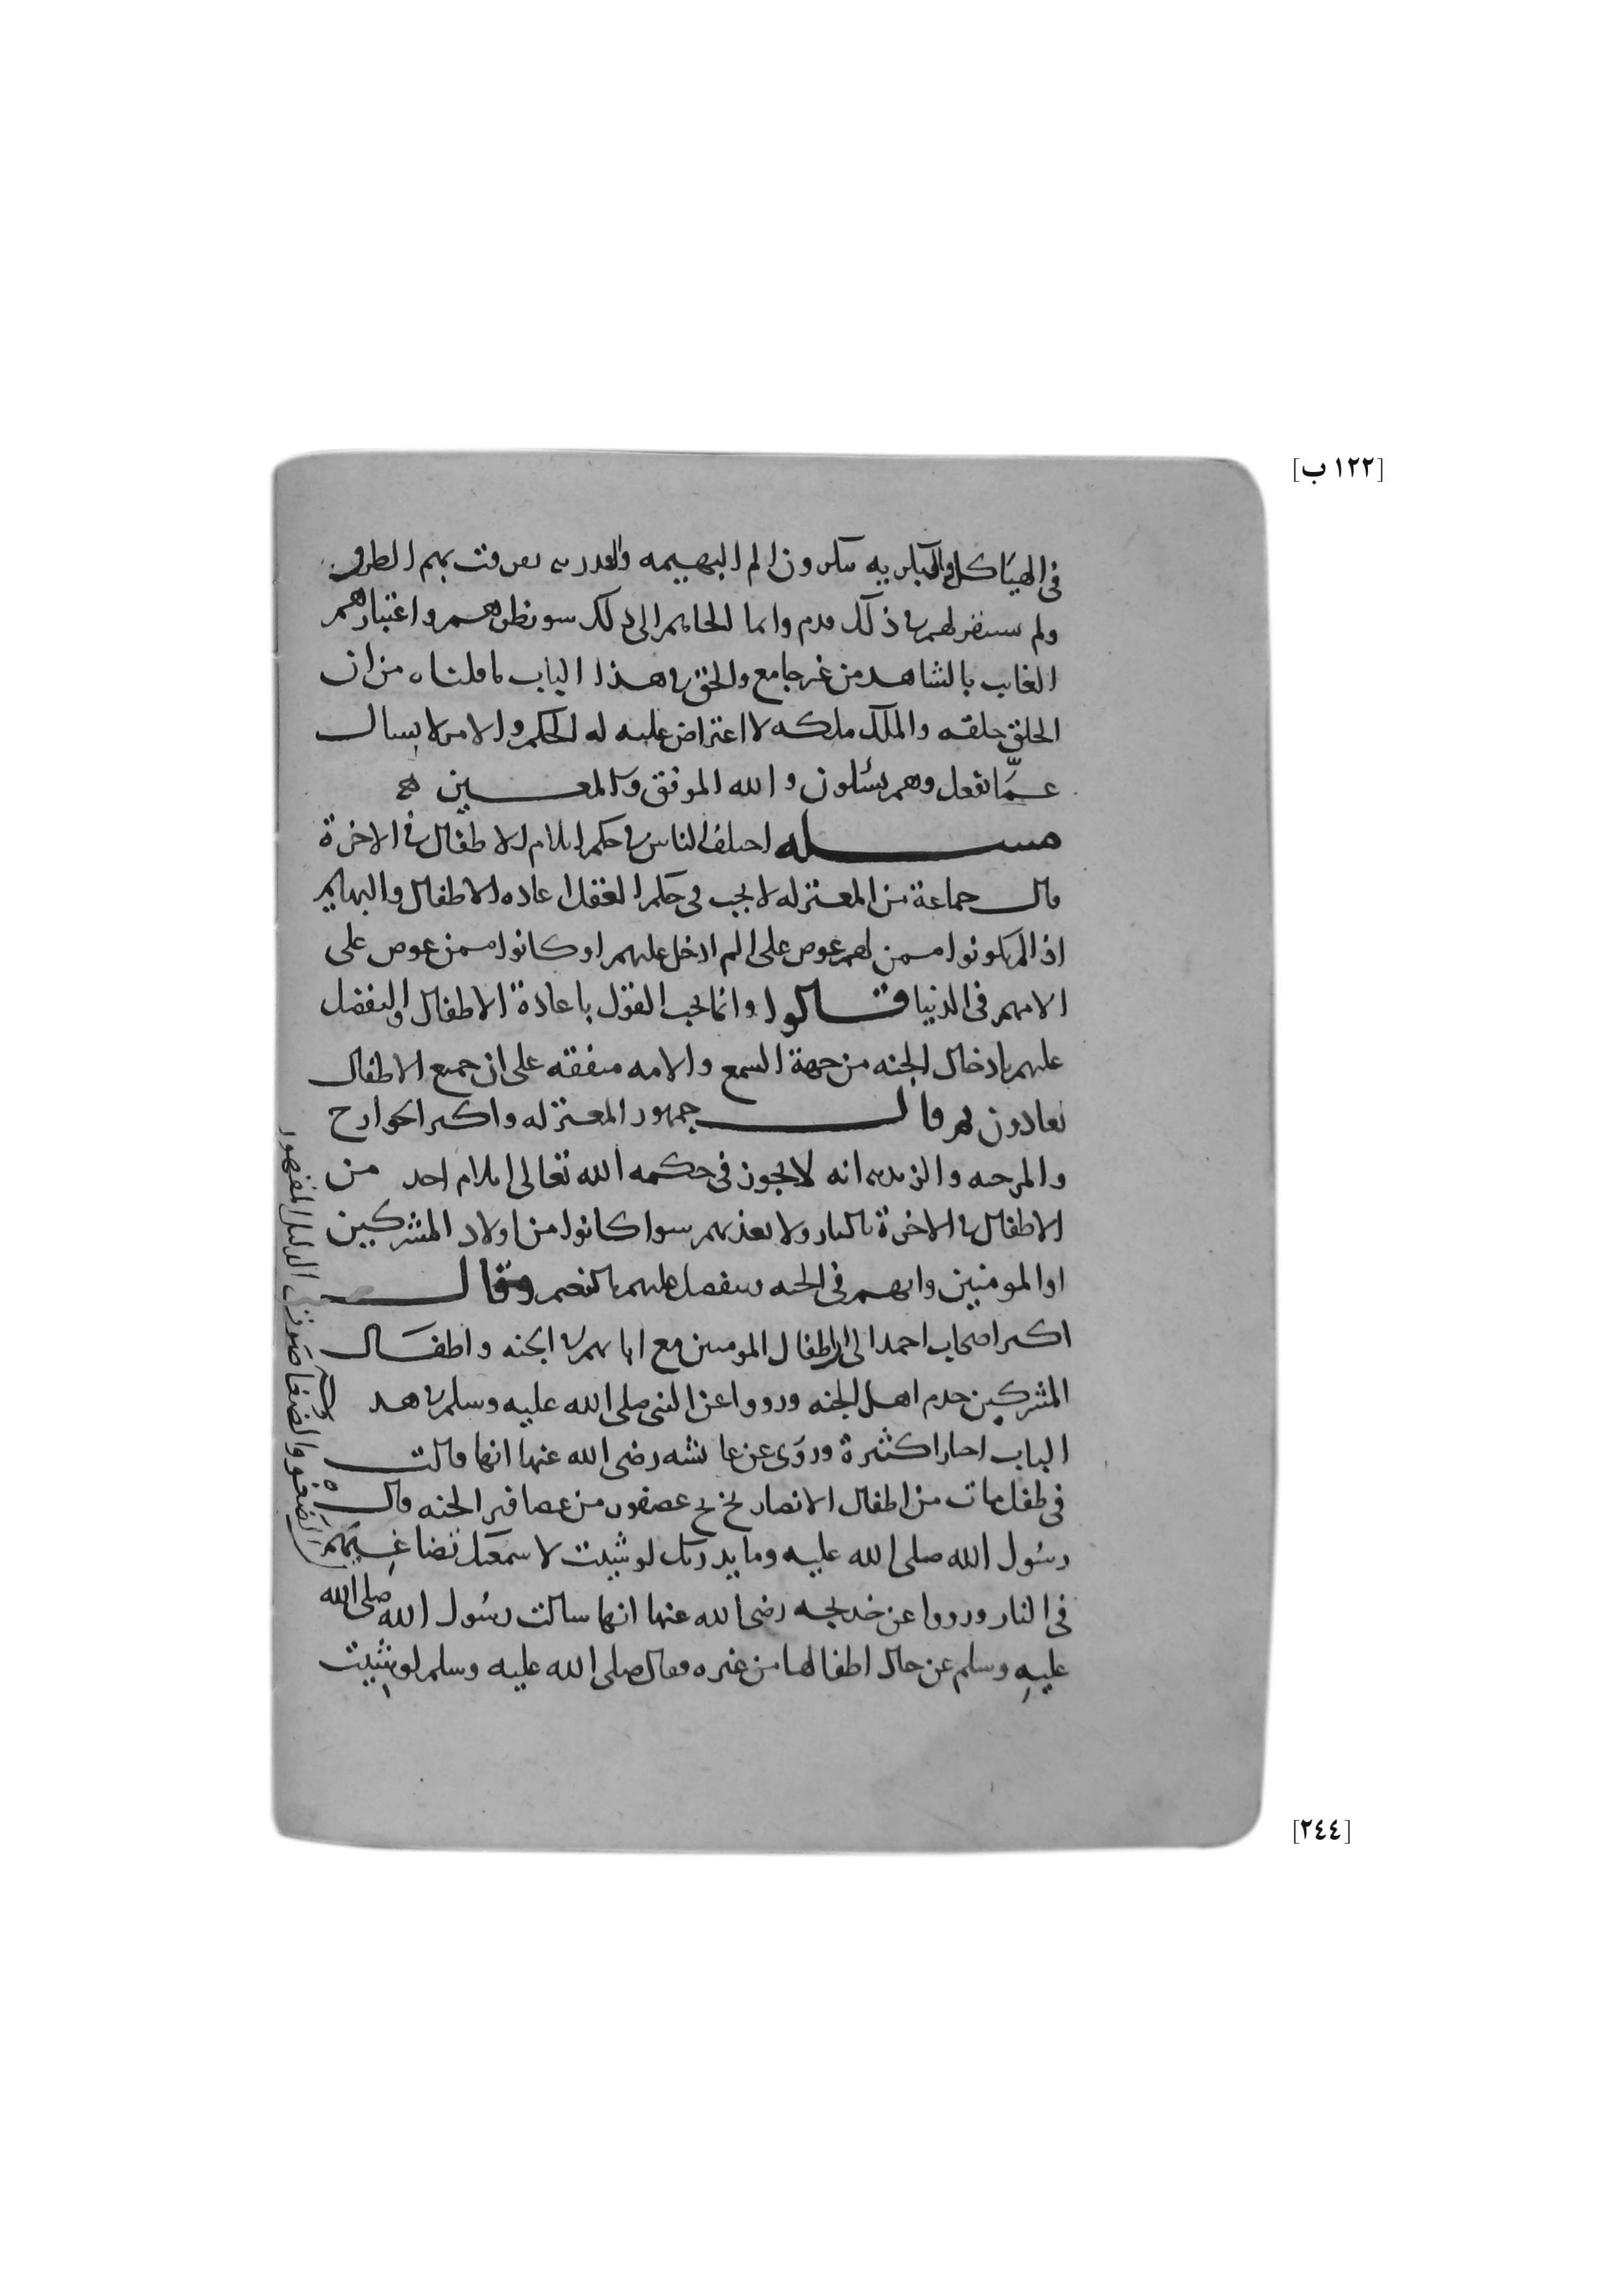 [١٢٢ ب]
في الهياكل والبكريه ينكرون الم البهيمه والقدريه تفرقت بهم الطرق
ولم يستقر لهم في ذلك قدم وانما الجاهم الى ذلك سو نظرهم واعتبارهم
الغايب بالشاهد من غير جامع والحق في هذا الباب ما قلناه من ان
الخلق خلقه والملك ملكه لا اعتراض عليه له الحكم والامر لا يسال
عمَّا يفعل وهم يسئلون والله الموفق والمعين
مسله اختلف الناس في حكم ايلام الاطفال في الاخرة
قال جماعة من المعتزله لا يجب في حكم العقل اعاده الاطفال والبهايم
اذا لم يكونوا ممن لهم عوض على الم ادخل عليهم او كانوا ممن عوض على
الامهم في الدنيا قالوا وانما يجب القول باعادة الاطفال والتفضل
عليهم بادخال الجنه من جهة السمع والامه متفقه على ان جميع الاطفال
يعادون ثم قال جمهور المعتزله واكثر الخوارج
والمرجيه والزيديه انه لا يجوز في حكمه الله تعالى ايلام احد من
الاطفال في الاخرة بالنار ولا يعذبهم سوا كانوا من اولاد المشركين
او المومنين وانهم في الجنه يتفضل عليهم بالنعيم وقال
اكثر اصحاب احمد الى ان اطفال المومنين مع ابايهم في الجنه واطفال
المشركين خدم اهل الجنه ورووا عن النبي صلى الله عليه وسلم في هذ
الباب اخبارا كثيرة وروى عن عائشه رضى الله عنها انها قالت
في طفل مات من اطفال الانصار بخ بخ عصفور من عصافير الجنه قال
رسول الله صلى الله عليه وما يدريك لو شيت لاسمعتك تضاغيهم
في النار ورووا عن خديجه رضى الله عنها انها سالت رسول الله صلى الله
عليه وسلم عن حال اطفالها من غيره فقال صلى الله عليه وسلم لو شيت
الضغو والضغا صوت الذليل المقهور
[٢٤٤]